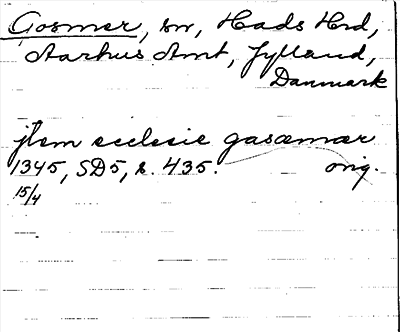 Gosmer, sn, Hads Hrd,
Aarhus Amt, Jylland,
Danmark
jtem ecclesie gasæmær
1345, SD5, s. 435. orig.
15/4